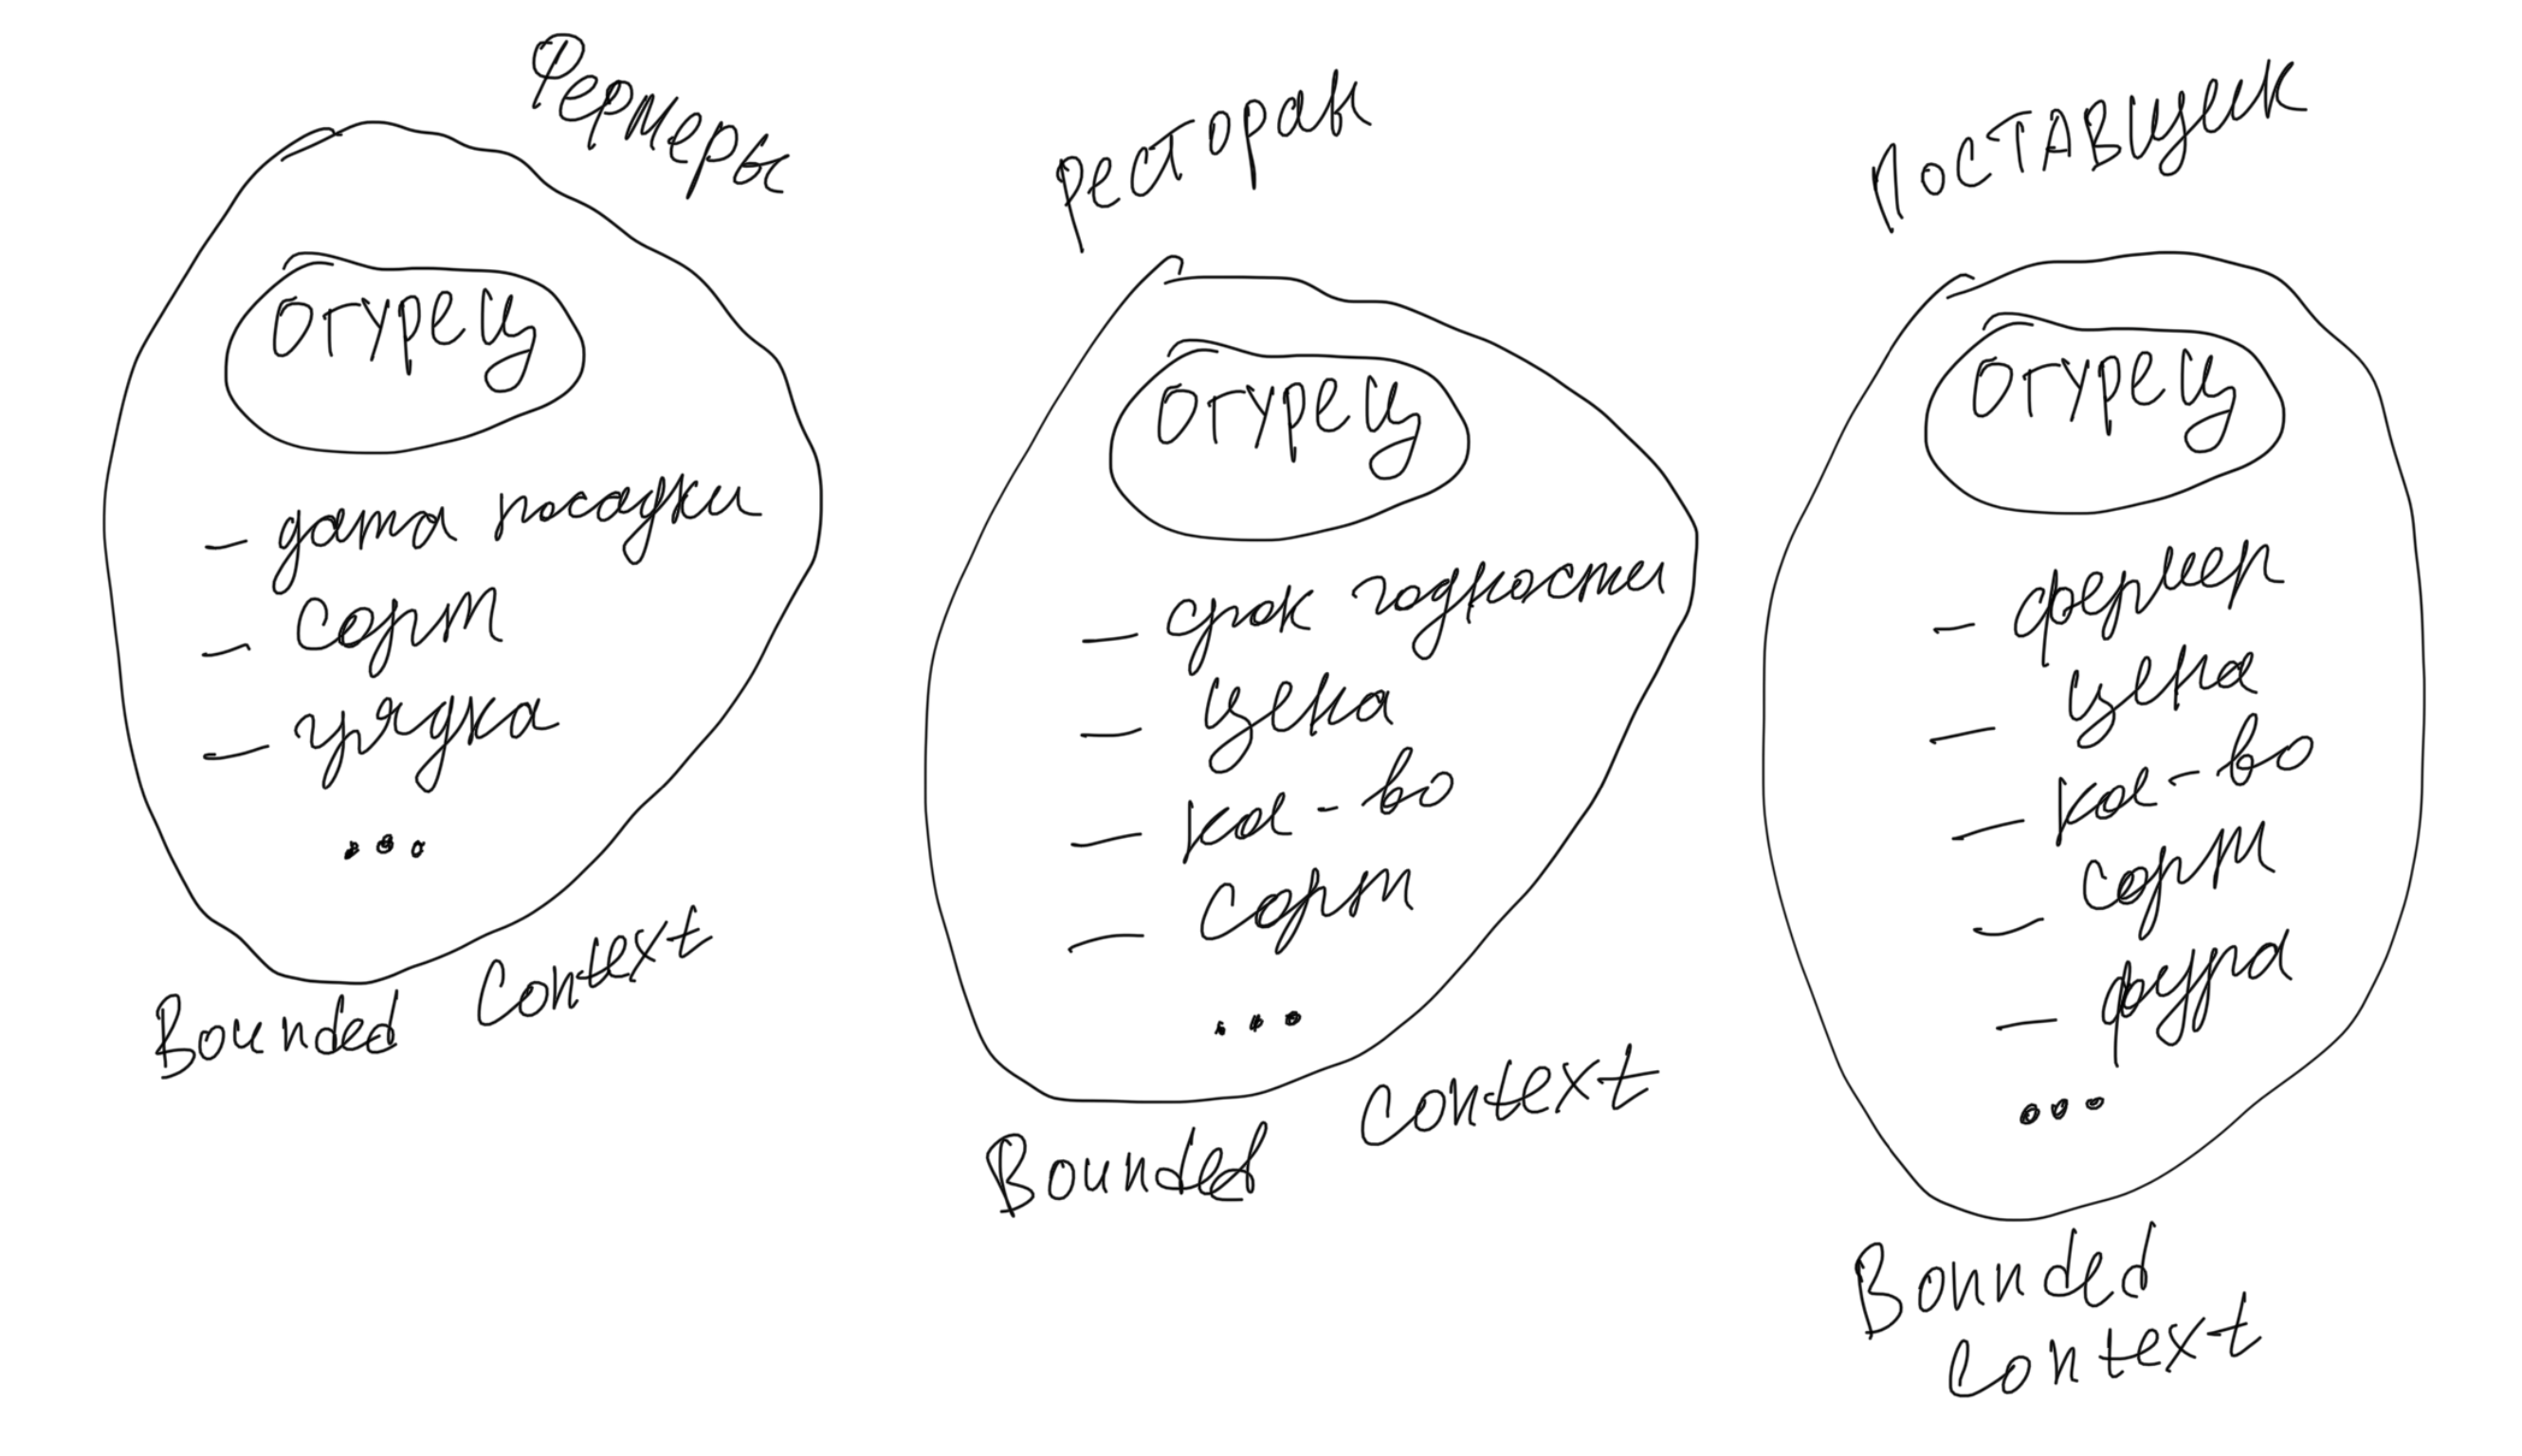 Фермеры
Огурец
- дата посадки
- Сорт
- грядка
...
Bounded Context
Ресторан
Огурец
- срок годности
- Цена
- кол-во
- Сорт
...
Bounded Context
Поставщик
Огурец
- фермер
- цена
- кол-во
- Сорт
- фура
...
Bounded
Context